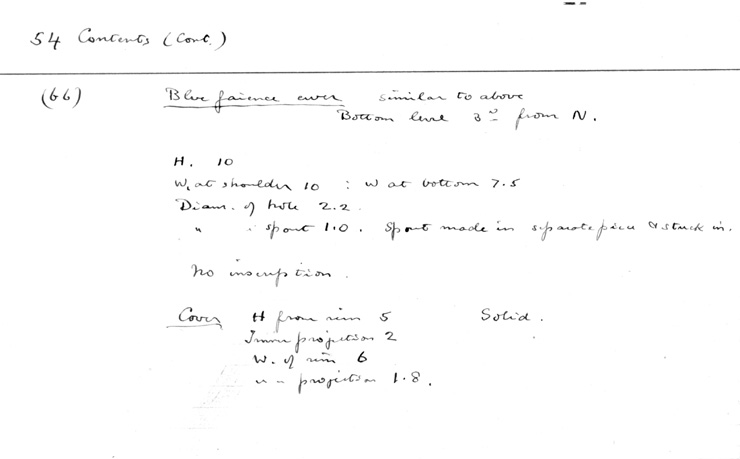 54 Contents (Cont.)
(bb) Blue faience ewer similar to above
Bottom level 3º from N.
H. 10
W. at shoulder 10 : W at bottom 7.5
Diam. of hole 2.2
" " spout 1.0. Spout made in separate piece & stuck in.
No inscription.
Cover H from rim 5 Solid.
Inner projection 2
W. of rim 6
" " projection 1.8.